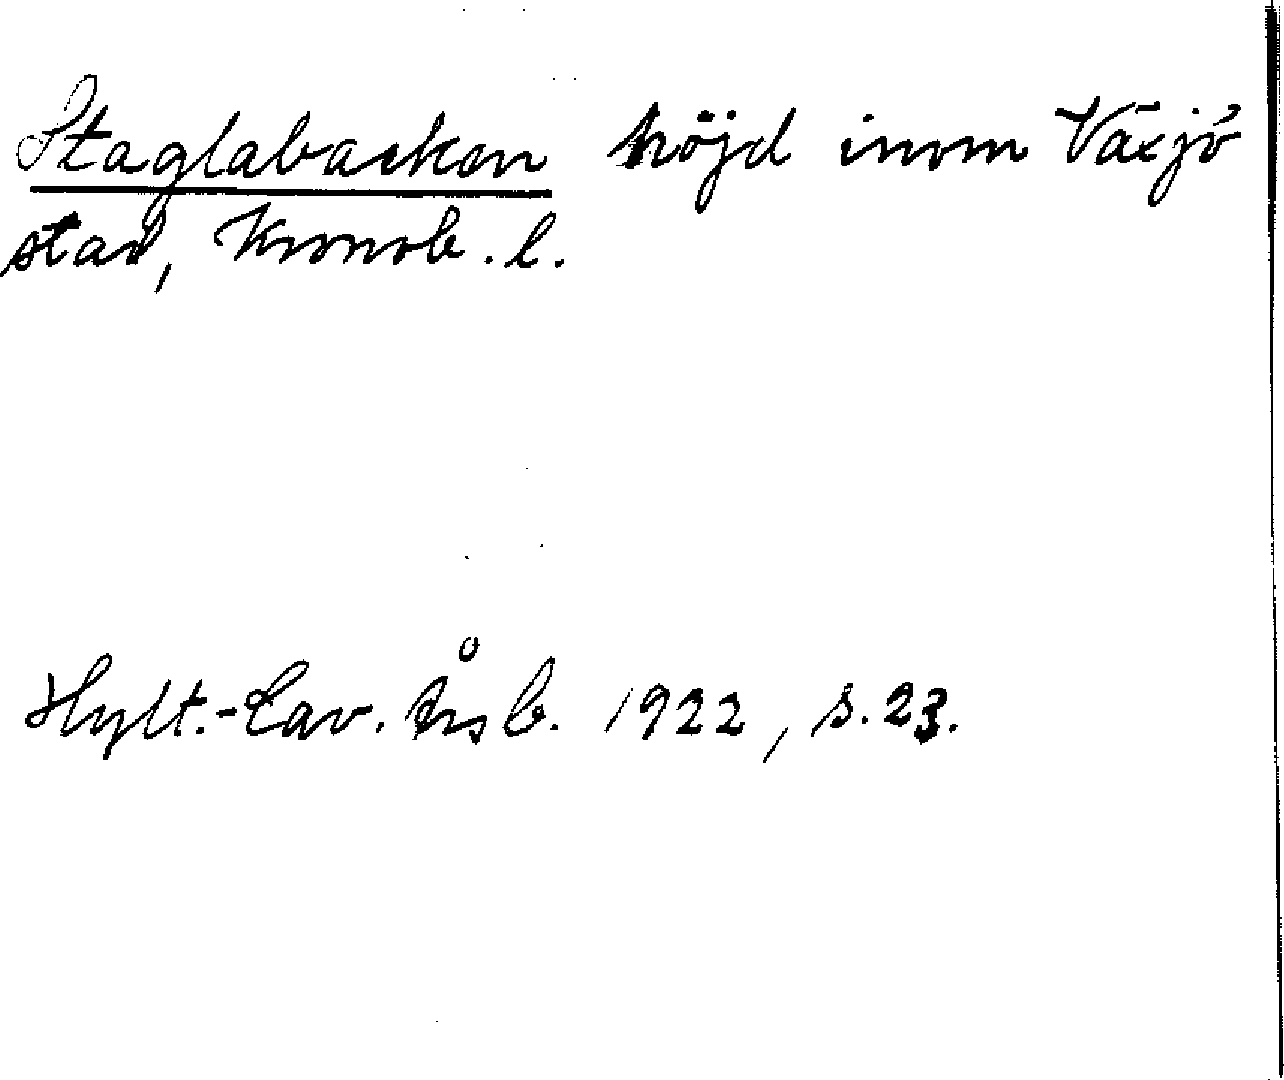 Staglabacken höjd inom Växjö
stad, Kronob. l.
Hylt.-Cav. Årsb. 1922, s. 23.